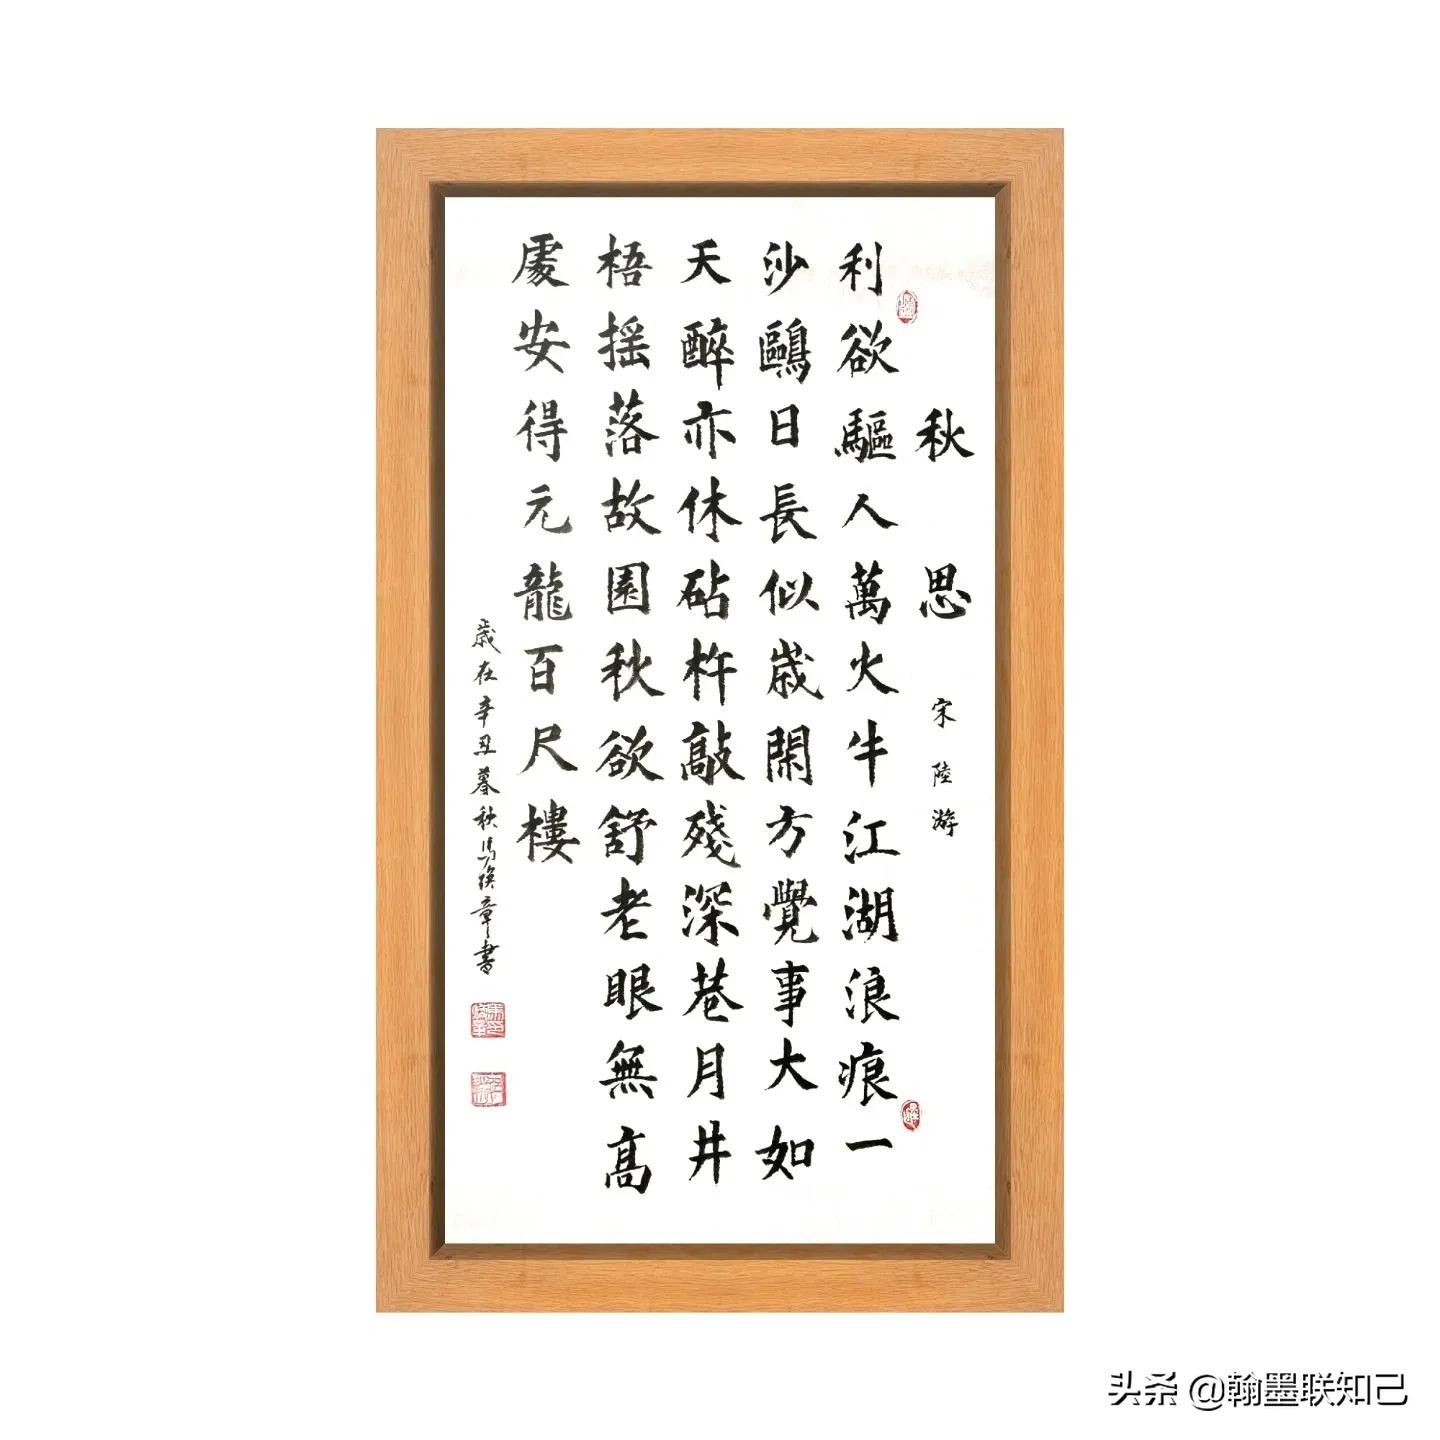 秋思 宋陸游
利欲驅人萬火牛江湖浪痕一
沙鷗日長似歲閑方覺事大如
天醉亦休砧杵敲殘深巷月井
梧摇落故園秋欲舒老眼無高
處安得元龍百尺樓
歲在辛丑暮秋馬煥章書
头条 @翰墨联知己